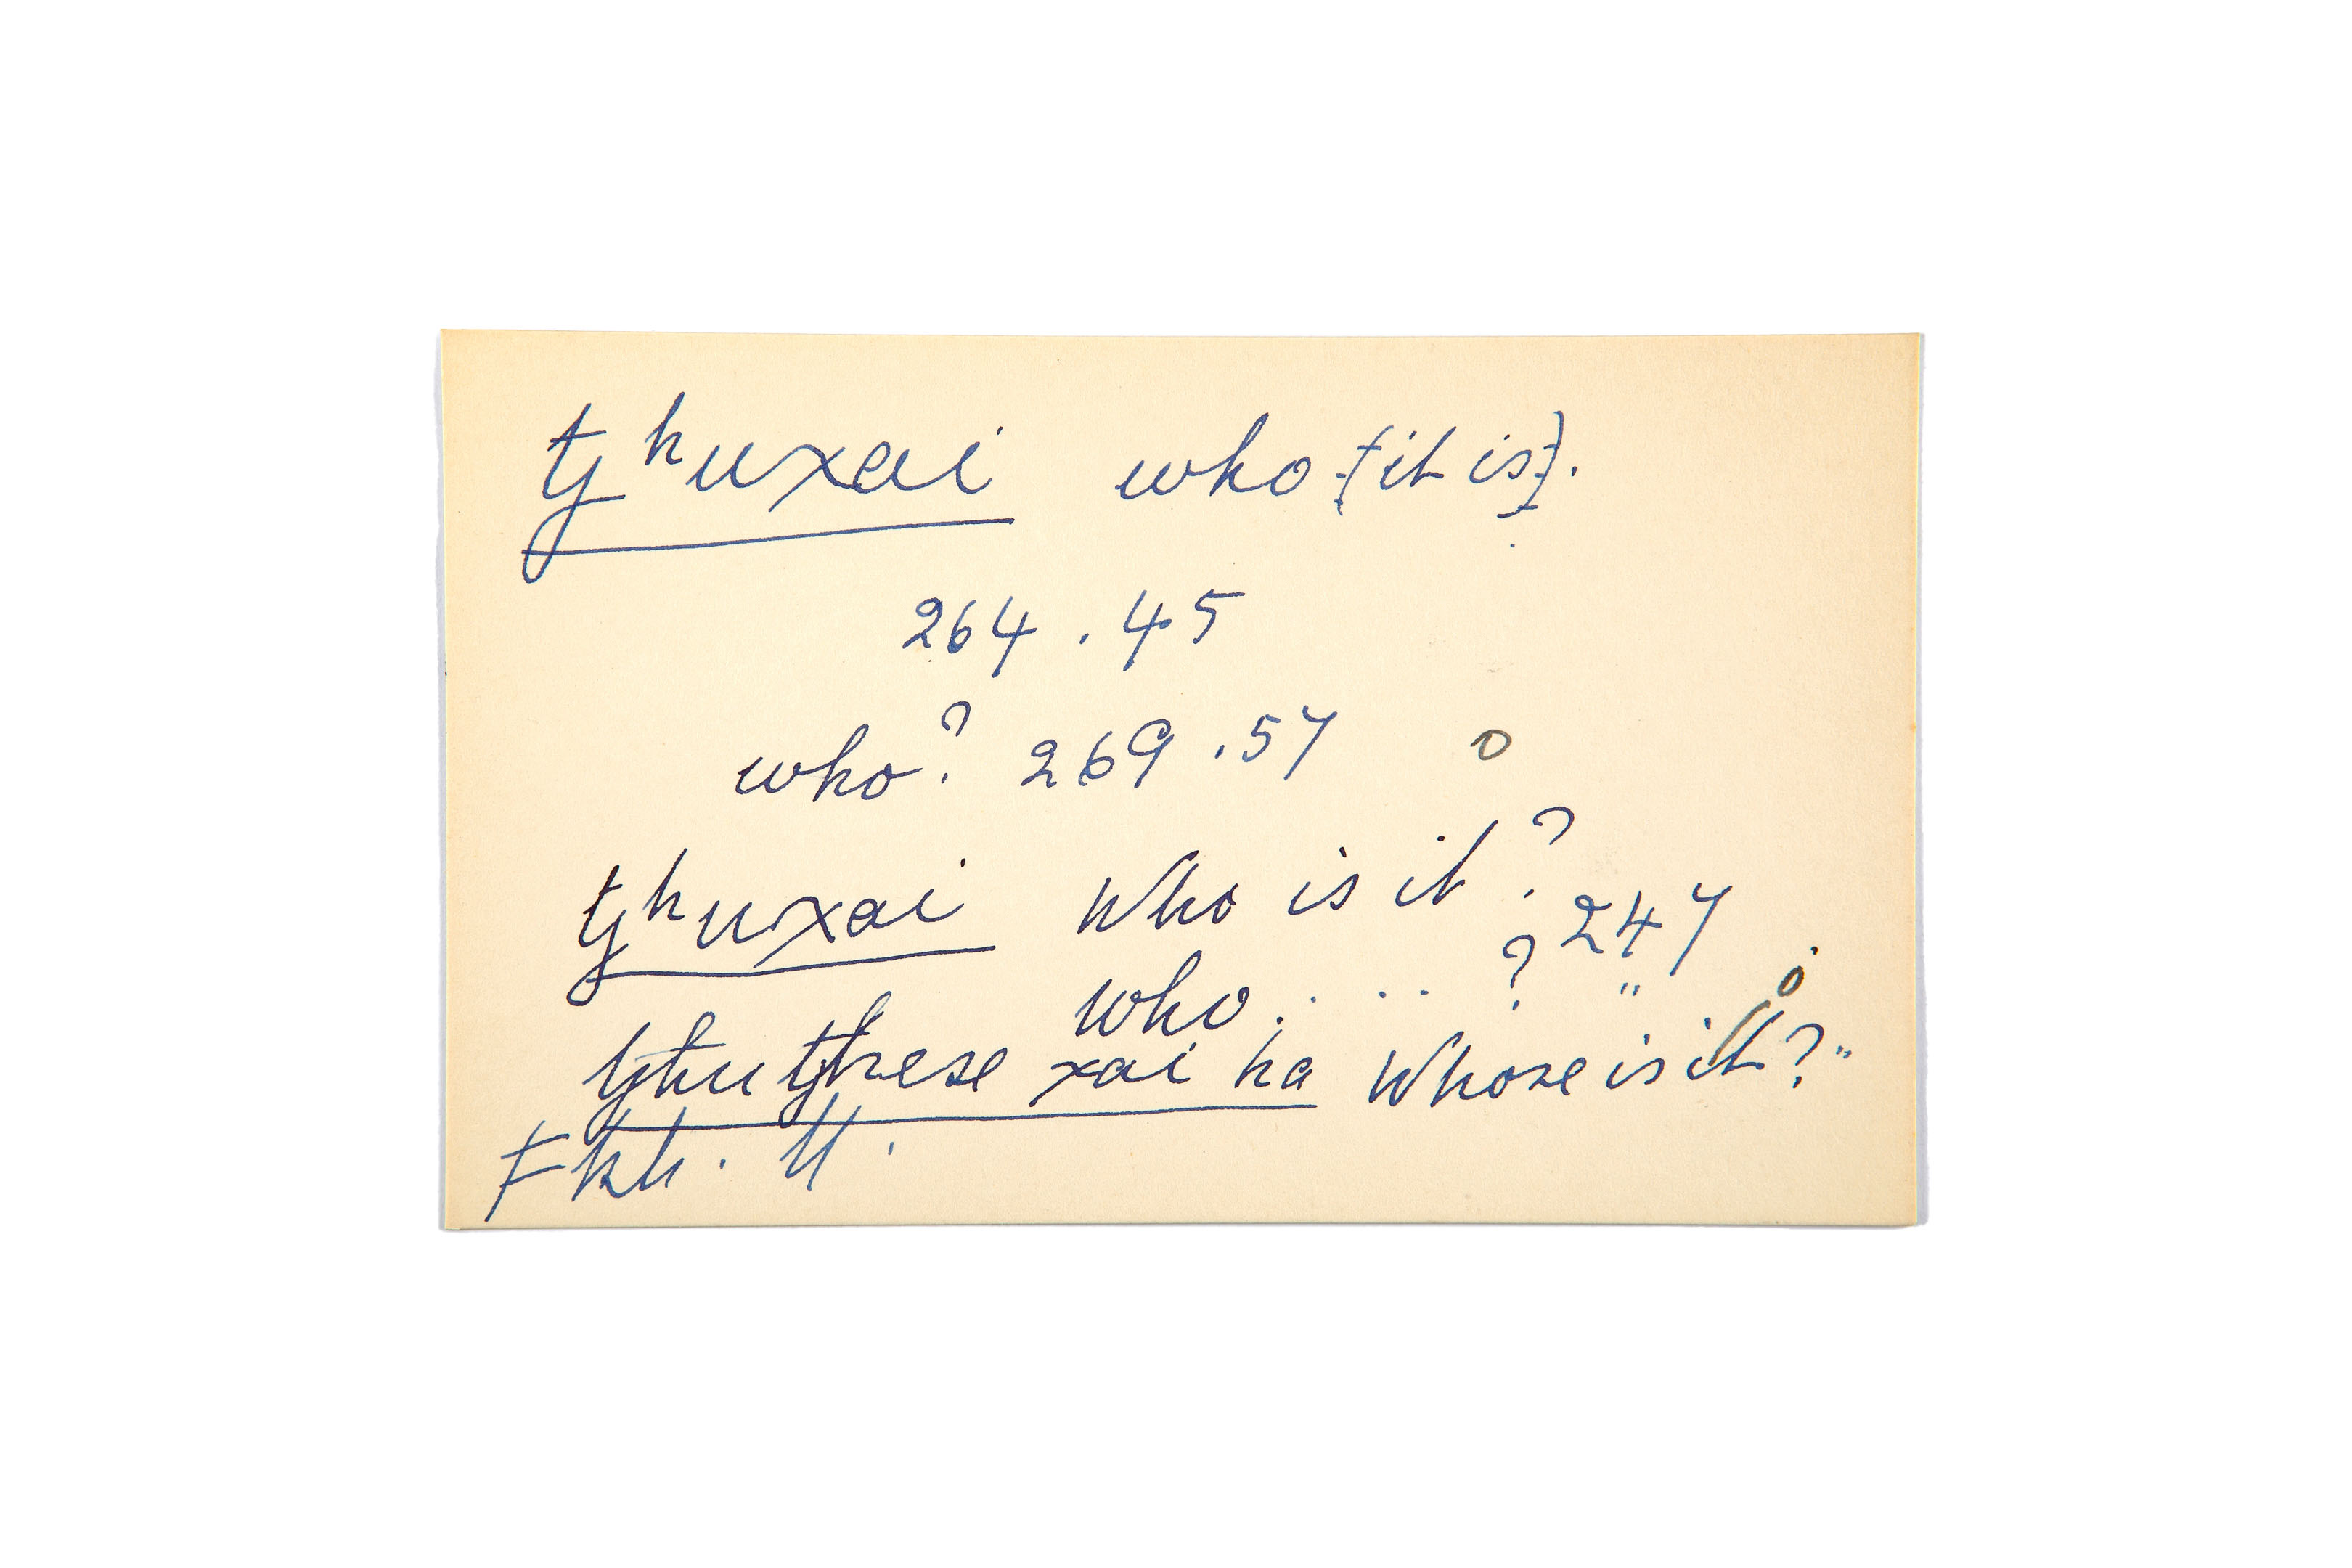 tyʰuxai who {it is}.
264.45
who? 269.57 o
tyʰuxai Who is it? 247
who. . . . ? "
tyhutyhese xai ha Whose is it? "